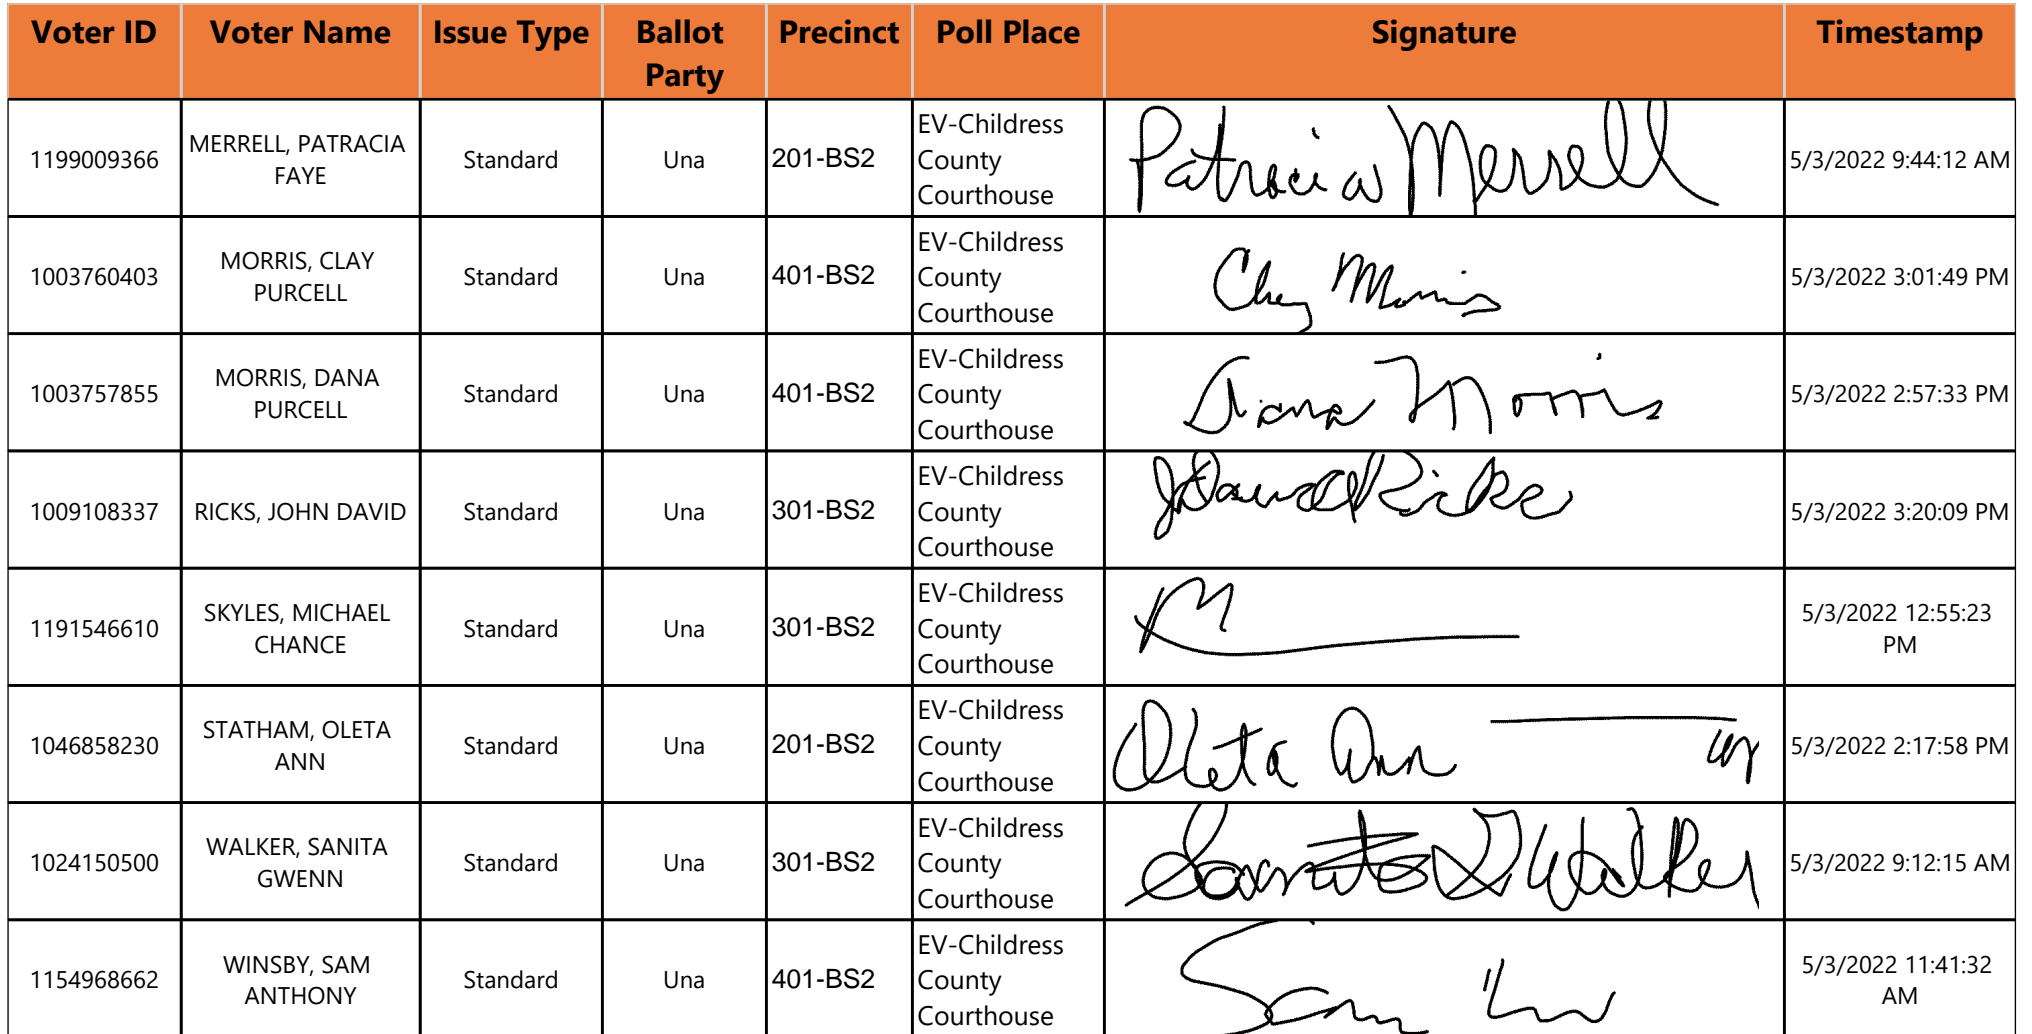 Voter ID Voter Name Issue Type Ballot Party Precinct Poll Place Signature Timestamp
1199009366 MERRELL, PATRACIA FAYE Standard Una 201-BS2 EV-Childress County Courthouse Patracia Merrell 5/3/2022 9:44:12 AM
1003760403 MORRIS, CLAY PURCELL Standard Una 401-BS2 EV-Childress County Courthouse Clay Morris 5/3/2022 3:01:49 PM
1003757855 MORRIS, DANA PURCELL Standard Una 401-BS2 EV-Childress County Courthouse Dana Morris 5/3/2022 2:57:33 PM
1009108337 RICKS, JOHN DAVID Standard Una 301-BS2 EV-Childress County Courthouse J David Ricks 5/3/2022 3:20:09 PM
1191546610 SKYLES, MICHAEL CHANCE Standard Una 301-BS2 EV-Childress County Courthouse 5/3/2022 12:55:23 PM
1046858230 STATHAM, OLETA ANN Standard Una 201-BS2 EV-Childress County Courthouse Oleta Ann 5/3/2022 2:17:58 PM
1024150500 WALKER, SANITA GWENN Standard Una 301-BS2 EV-Childress County Courthouse Sanita G Walker 5/3/2022 9:12:15 AM
1154968662 WINSBY, SAM ANTHONY Standard Una 401-BS2 EV-Childress County Courthouse Sam 5/3/2022 11:41:32 AM